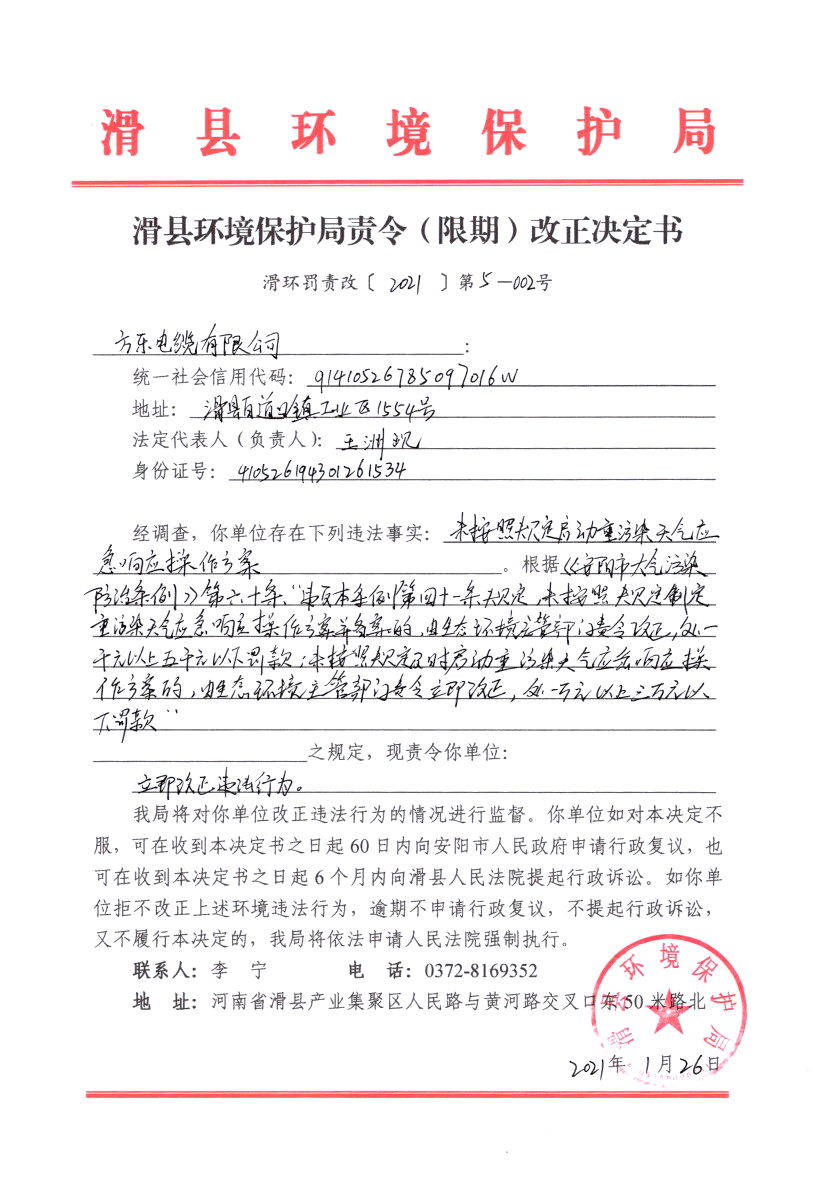 滑县环境保护局
滑县环境保护局责令（限期）改正决定书
滑环罚责改〔 2021 〕第5-002号
方东电缆有限公司：
统一社会信用代码：91410526785097016W
地址：滑县道口镇工业区1554号
法定代表人（负责人）：王洲现
身份证号：410526194301261534
经调查，你单位存在下列违法事实：未按照规定启动重污染天气应
急响应操作方案。根据《安阳市大气污染
防治条例》第六十条、“违反本条例第四十一条规定，未按照规定制定
重污染天气应急响应操作方案并备案的，由生态环境主管部门责令改正，处一
千元以上五千元以下罚款；未按照规定及时启动重污染天气应急响应操
作方案的，由生态环境主管部门责令立即改正，处一万元以上三万元以
下罚款”
之规定，现责令你单位：
立即改正违法行为。
我局将对你单位改正违法行为的情况进行监督。你单位如对本决定不
服，可在收到本决定书之日起 60 日内向安阳市人民政府申请行政复议，也
可在收到本决定书之日起 6 个月内向滑县人民法院提起行政诉讼。如你单
位拒不改正上述环境违法行为，逾期不申请行政复议，不提起行政诉讼，
又不履行本决定的，我局将依法申请人民法院强制执行。
联系人：李 宁 电 话：0372-8169352
地 址：河南省滑县产业集聚区人民路与黄河路交叉口东 50 米路北
滑县环境保护局
2021年 1月26日